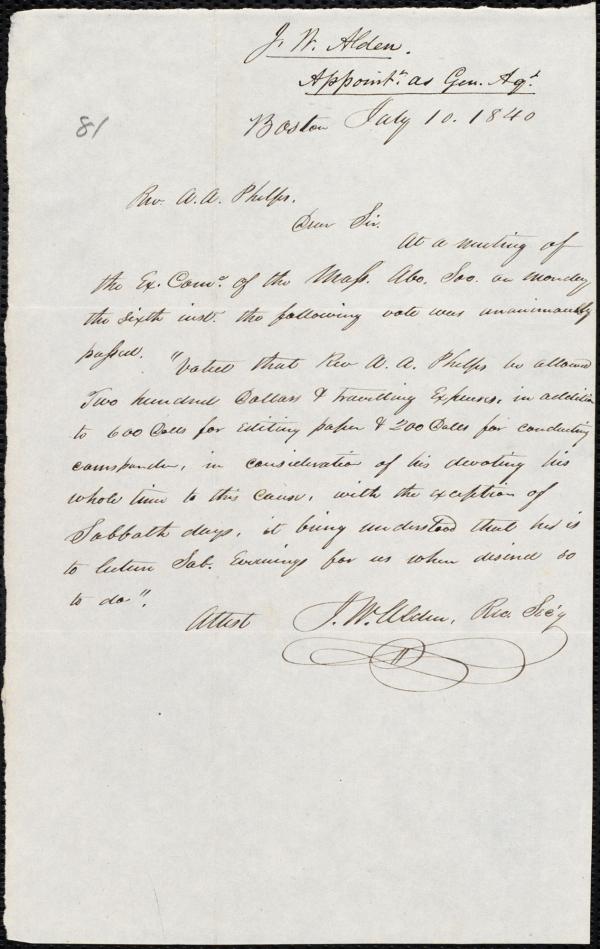 J. W. Alden.
Appointt. as Gen. Agt.
81
Boston July 10. 1840
Rev. A. A. Phelps.
Dear Sir.
At a meeting of
the Ex. Come. of the Mass. Abo. Soc. on monday
the sixth inst. the following vote was unanimously
passed. "Voted that Rev A. A. Phelps be allowed
Two hundred Dollars & travelling Expenses, in addition
to 600 Dolls for Editing paper & 200 Dolls for conducting
correspondce, in consideration of his devoting his
whole time to this cause, with the exception of
Sabbath days, it being understood that he is
to lecture Sab. Evenings for us when desired so
to do".
Attest J. W. Alden, Rec. Sec'y